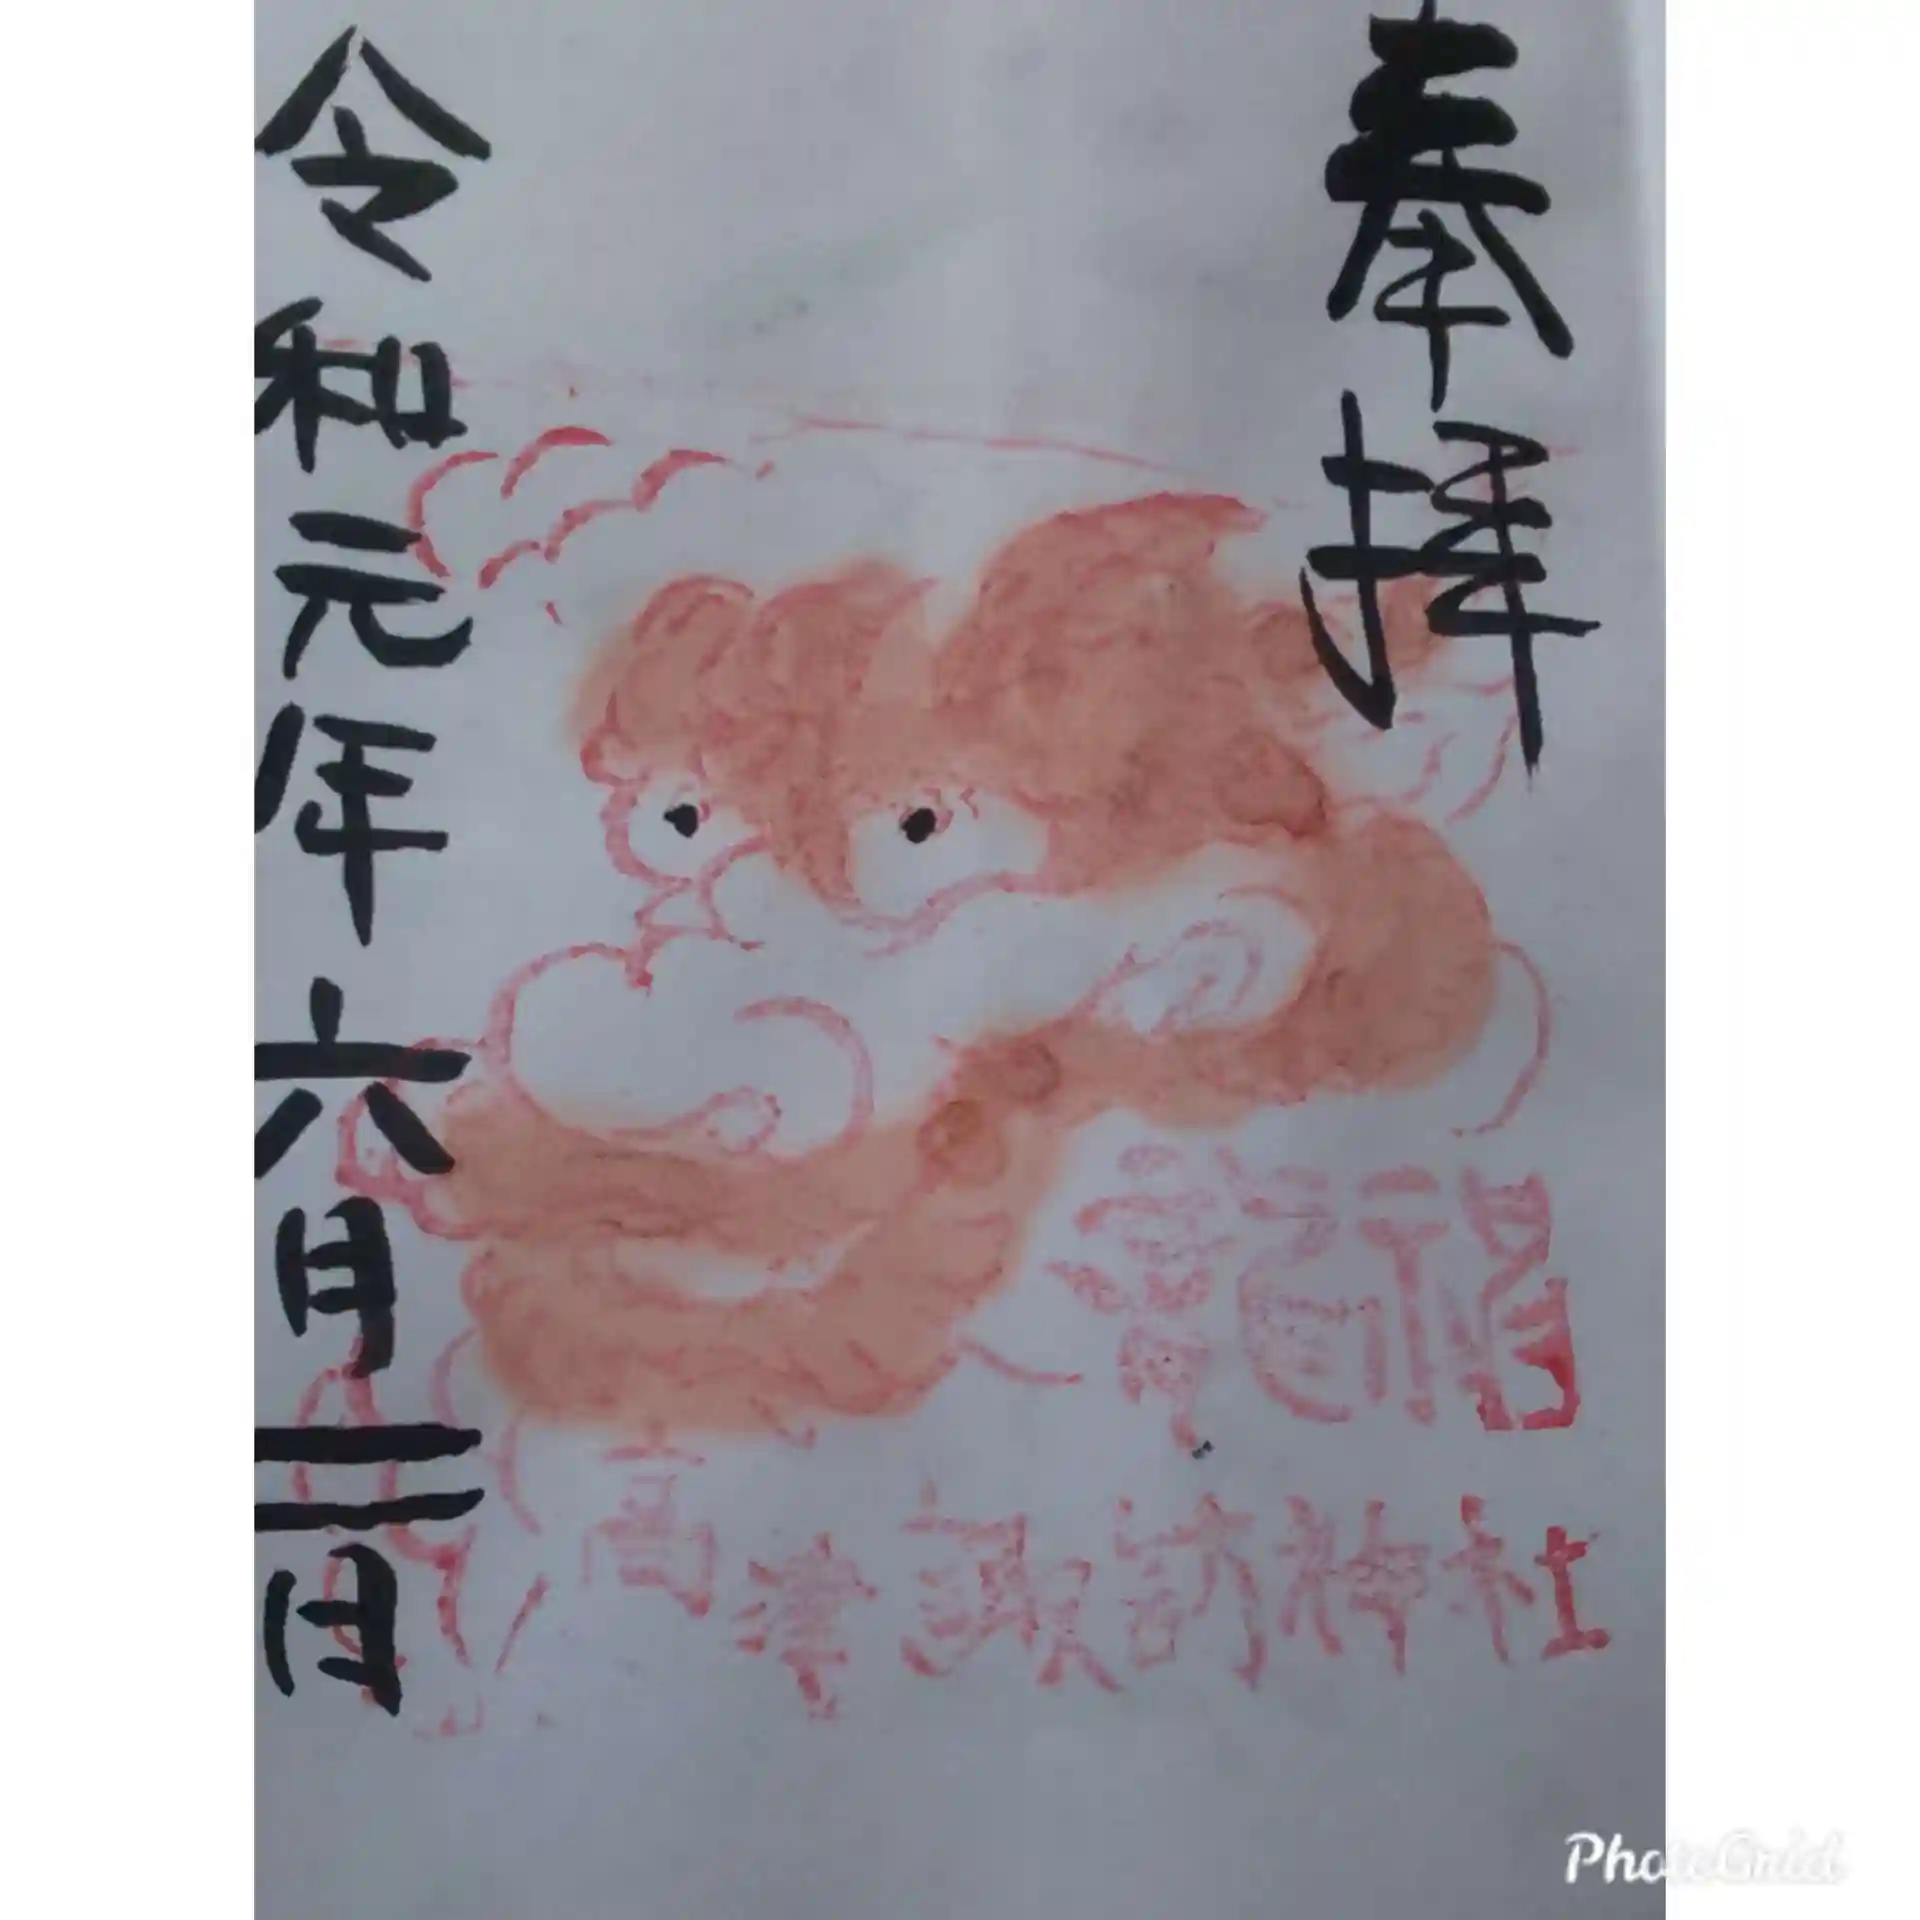 奉拝
龍神
高津諏訪神社
令和元年六月二日
PhotoGrid